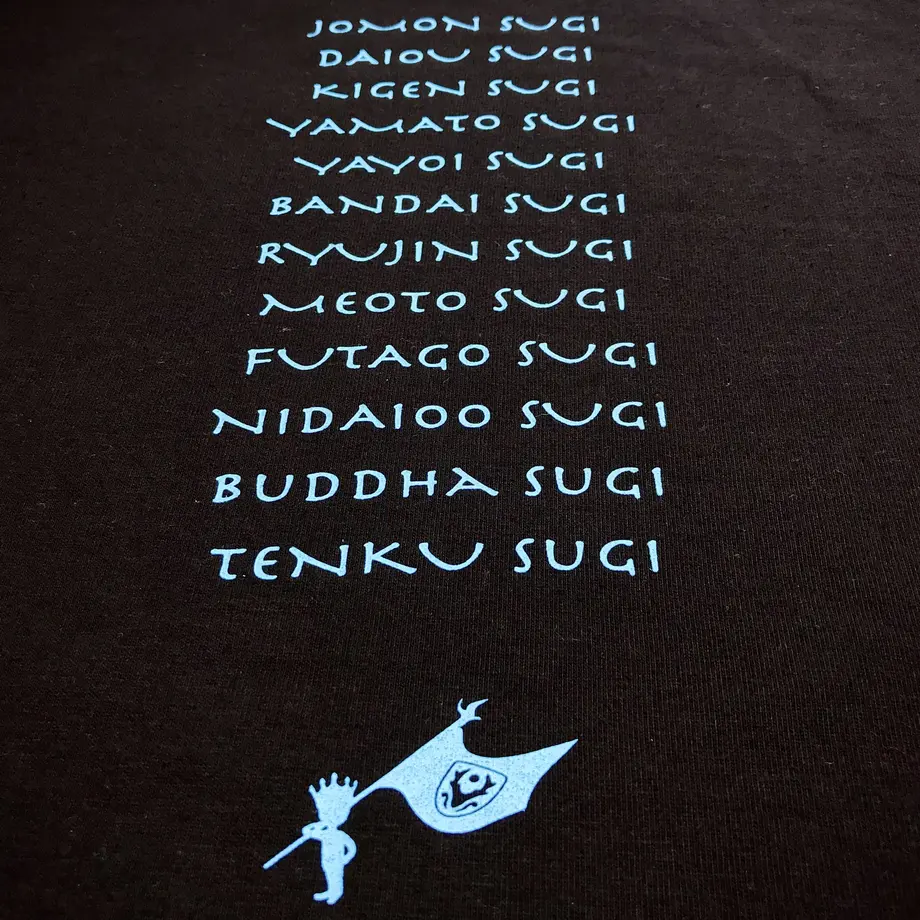 JOMON SUGI
DAIOU SUGI
KIGEN SUGI
YAMATO SUGI
YAYOI SUGI
BANDAI SUGI
RYUJIN SUGI
MEOTO SUGI
FUTAGO SUGI
NIDAIOO SUGI
BUDDHA SUGI
TENKU SUGI